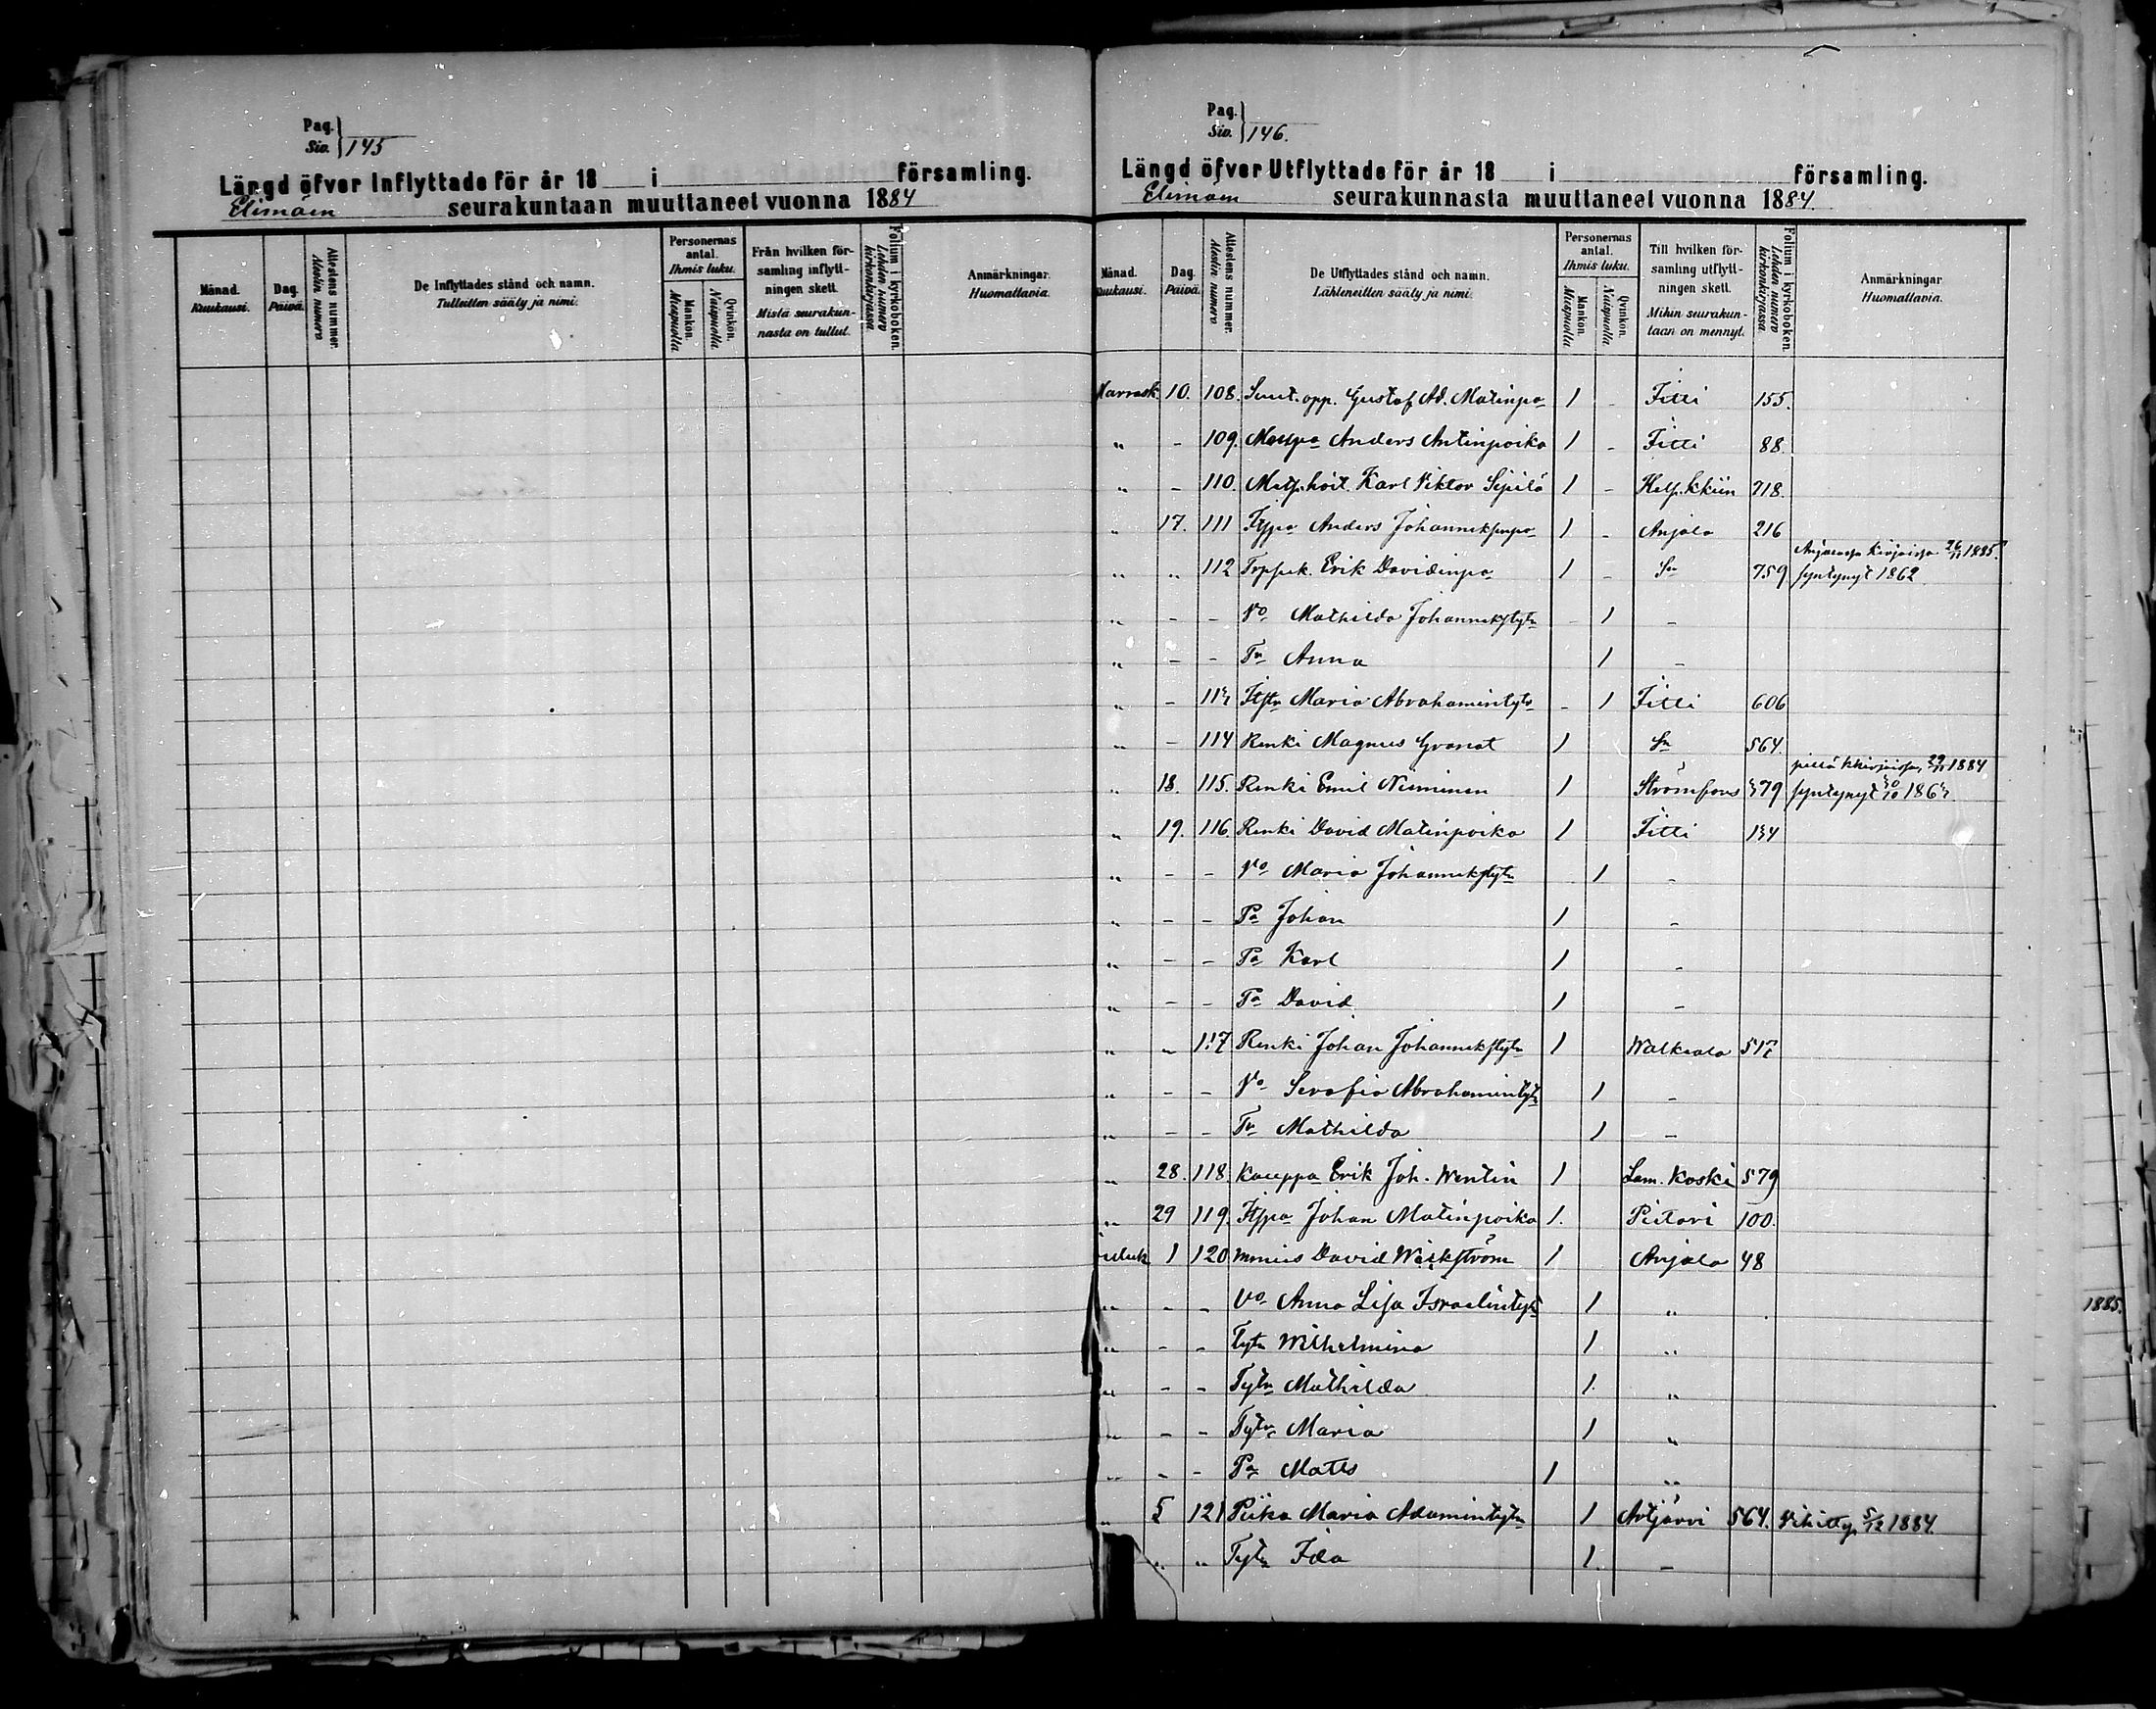 Pag.
Siv. 145
Längd öfver Inflyttade för år 18 i församling.
Elimäen seurakuntaan muuttaneet vuonna 1884
Månad.
Kuukausi.
Dag.
Päivä.
Attestens nummer.
Alestin numero
De Inflyttades stånd och namn.
Tulleitten sääty ja nimi.
Personernas
antal.
Ihmis luku.
Mankön.
Miespuolia
Qvinkön.
Naispuolia
Från hvilken för-
samling inflytt-
ningen skett.
Mistä seurakun-
nasta on tullut.
Folium i kyrkoboken.
Lehden numero
kirkonkirjassa.
Anmärkningar.
Huomattavia.
Pag.
Siv. 146.
Längd öfver Utflyttade för år 18 i församling.
Elimäen seurakunnasta muuttaneet vuonna 1884.
Månad.
Kuukausi.
Dag.
Päivä.
Attestens nummer.
Alestin numero
De Utflyttades stånd och namn.
Lähteneitten sääty ja nimi.
Personernas
antal.
Ihmis luku.
Mankön.
Miespuolia
Qvinkön.
Naispuolia
Till hvilken för-
samling utflytt-
ningen skett.
Mihin seurakun-
taan on mennyt.
Folium i kyrkoboken.
Lehden numero
kirkonkirjassa.
Anmärkningar.
Huomattavia.
Marrask. 10. 108. opp. Gustaf Ad. Matinpa 1 - Iitti 155.
" - 109. Anders Antinpoika 1 - Iitti 88.
" - 110. Karl Viktor Sipilä 1 - 718.
" 17. 111 Itspa Anders Johanneksenpa 1. - Anjala 216
Kirjoissa 26/11 1885.
" " 112 Erik Davidinpa 1 - Sn 759 syntynyt 1862
" - - Vo Mathilda Johanneksstytr - 1 -
" - - Tr Anna 1 -
" - 113 Itstr Maria Abrahamintytr - 1 Iitti 606
" - 114 Renki Magnus Granat 1 Sn 564.
1884
" 18. 115. Renki Emil Nieminen 1 Strömfors 379 syntynyt 30/10 1863.
" 19. 116. Renki David Matinpoika 1 Iitti 134
" - - Vo Maria Johanneksstytr 1 -
" - - Pa Johan 1 -
" - - Pa Karl 1 -
" - - Pa David 1 -
" " 117 Renki Johan Johanneksstytr 1 Walkeala
" - - Vo Serafia Abrahamintytr 1 -
" - - Tr Mathilda 1 -
" 28. 118. Kauppa Erik Joh. Wentin 1 Lam. Koski 579
" 29 119. Itspa Johan Matinpoika 1. Pietari 100.
1 120 David Wäikström 1 Anjala 48
" - - Vo Anna Lisa Israelintytr 1 "
" - - Tytr Wilhelmina 1 "
" - - Tytr Mathilda 1. "
" - - Tytr Maria 1 "
" - - Pa Matts 1 "
" 5 121 Piika Maria Adamintytr 1 Artjärvi 564. Vihitty 5/12 1884.
" " Tytr Ida 1. -
1885.